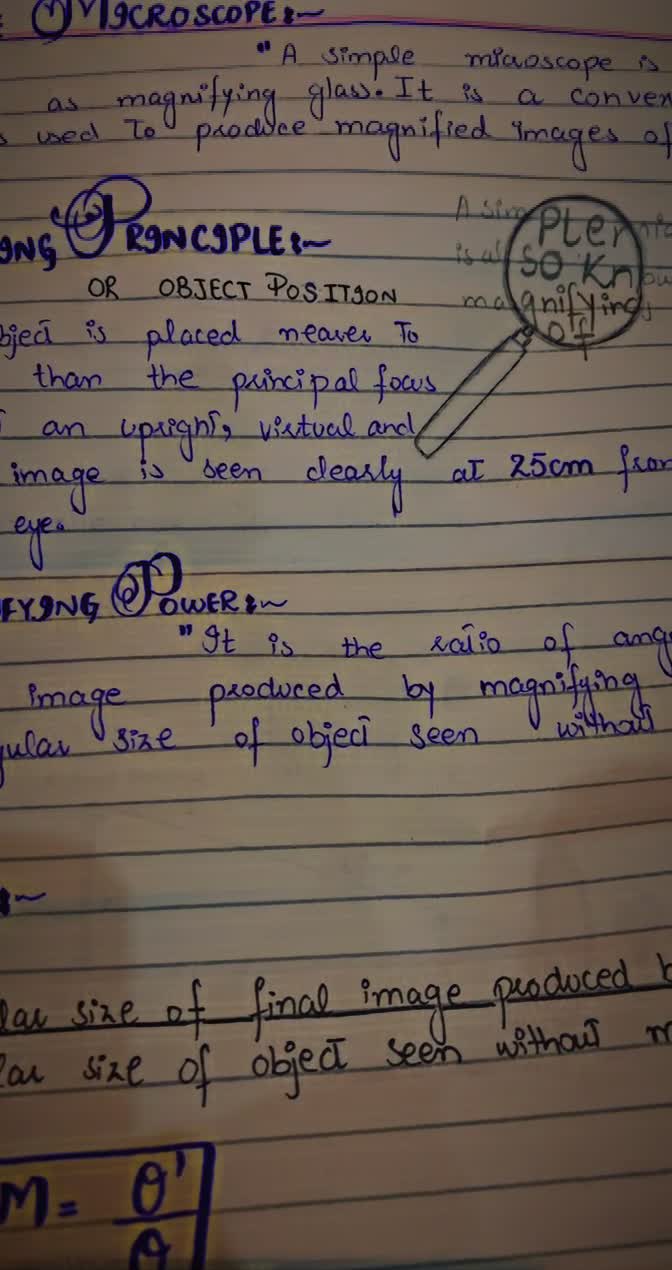 ① MICROSCOPE:~
"A simple microscope is
as magnifying glass. It is a conven
s used To produce magnified images of
ING PRINCIPLE:~
OR OBJECT POSITION
A sim
PLe
is al so Kno
magnifying
of
bject is placed nearer To
than the principal focus
an upright, virtual and
image is seen clearly at 25cm from
eye.
FYING POWER:~
"It is the ratio of ang
image produced by magnifying
gular size of object seen without
:~
lar size of final image produced b
lar size of object seen without m
M = θ'
θ